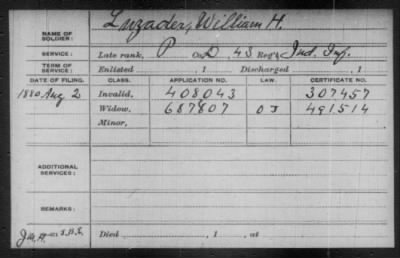 NAME OF SOLDIER: Luzader, William H.
SERVICE: Late rank, P Co. D, 43 Reg't Ind. Inf.
TERM OF SERVICE: Enlisted , 1 Discharged , 1
DATE OF FILING. CLASS. APPLICATION NO. LAW. CERTIFICATE NO.
1880 Aug 2 Invalid, 408043 307457
Widow, 687807 OJ 491514
Minor,
ADDITIONAL SERVICES:
REMARKS:
Died , 1 , at